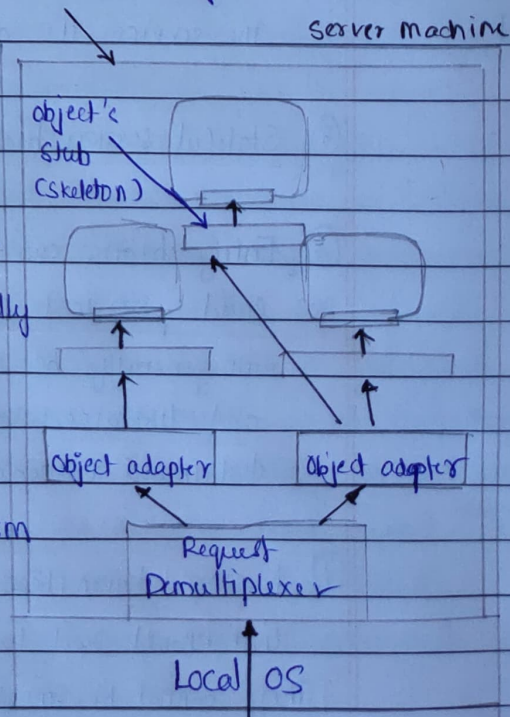 server machine
object's
stub
(skeleton)
lly
Object adapter
Object adapter
m
Request
Demultiplexer
Local OS